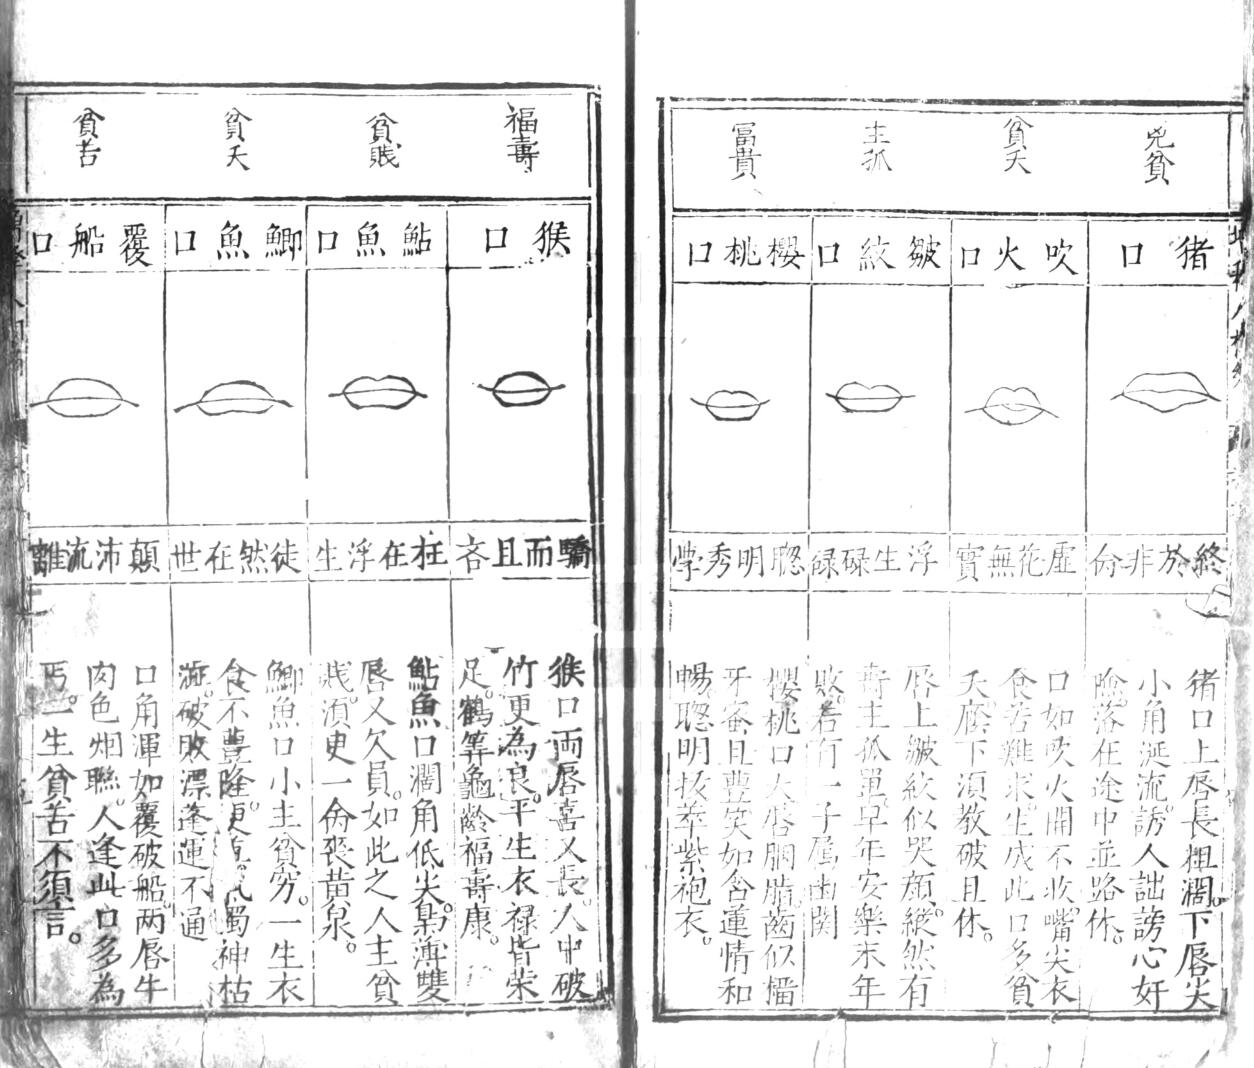 兇貧
猪口
終於非命
猪口上唇長粗濶。下唇尖
小角涎流。誘人訕謗心奸
險。落在途中並路休。
貧夭
吹火口
虛花無實
口如吹火開不收嘴尖衣
食苦難求。生成此口多貧
夭。廕下須教破且休。
主孤
皺紋口
浮生碌碌
唇上皺紋似哭顏。縱然有
壽主孤單。早年安樂末年
敗。若有一子屬幽関
富貴
櫻桃口
聰明秀學
櫻桃口大唇胭脂。齒似榴
牙密且豐。笑如含蓮情和
暢。聰明拔萃紫袍衣。
福壽
猴口
驕而且吝
猴口両唇喜又長。人中破
竹更為良。平生衣禄皆荣
足。鶴筭龜齡福壽康。
貧賎
鮎魚口
枉在浮生
鮎魚口濶角低尖。梟薄雙
唇又欠員。如此之人主貧
賎。須臾一命喪黄泉。
貧夭
鯽魚口
徒然在世
鯽魚口小主貧窮。一生衣
食不豐隆。更濁神枯
澁。破敗漂蓬運不通
貧苦
覆船口
顛沛流離
口角渾如覆破船。两唇牛
肉色烟聮。人逢此口多為
丐。一生貧苦不須言。